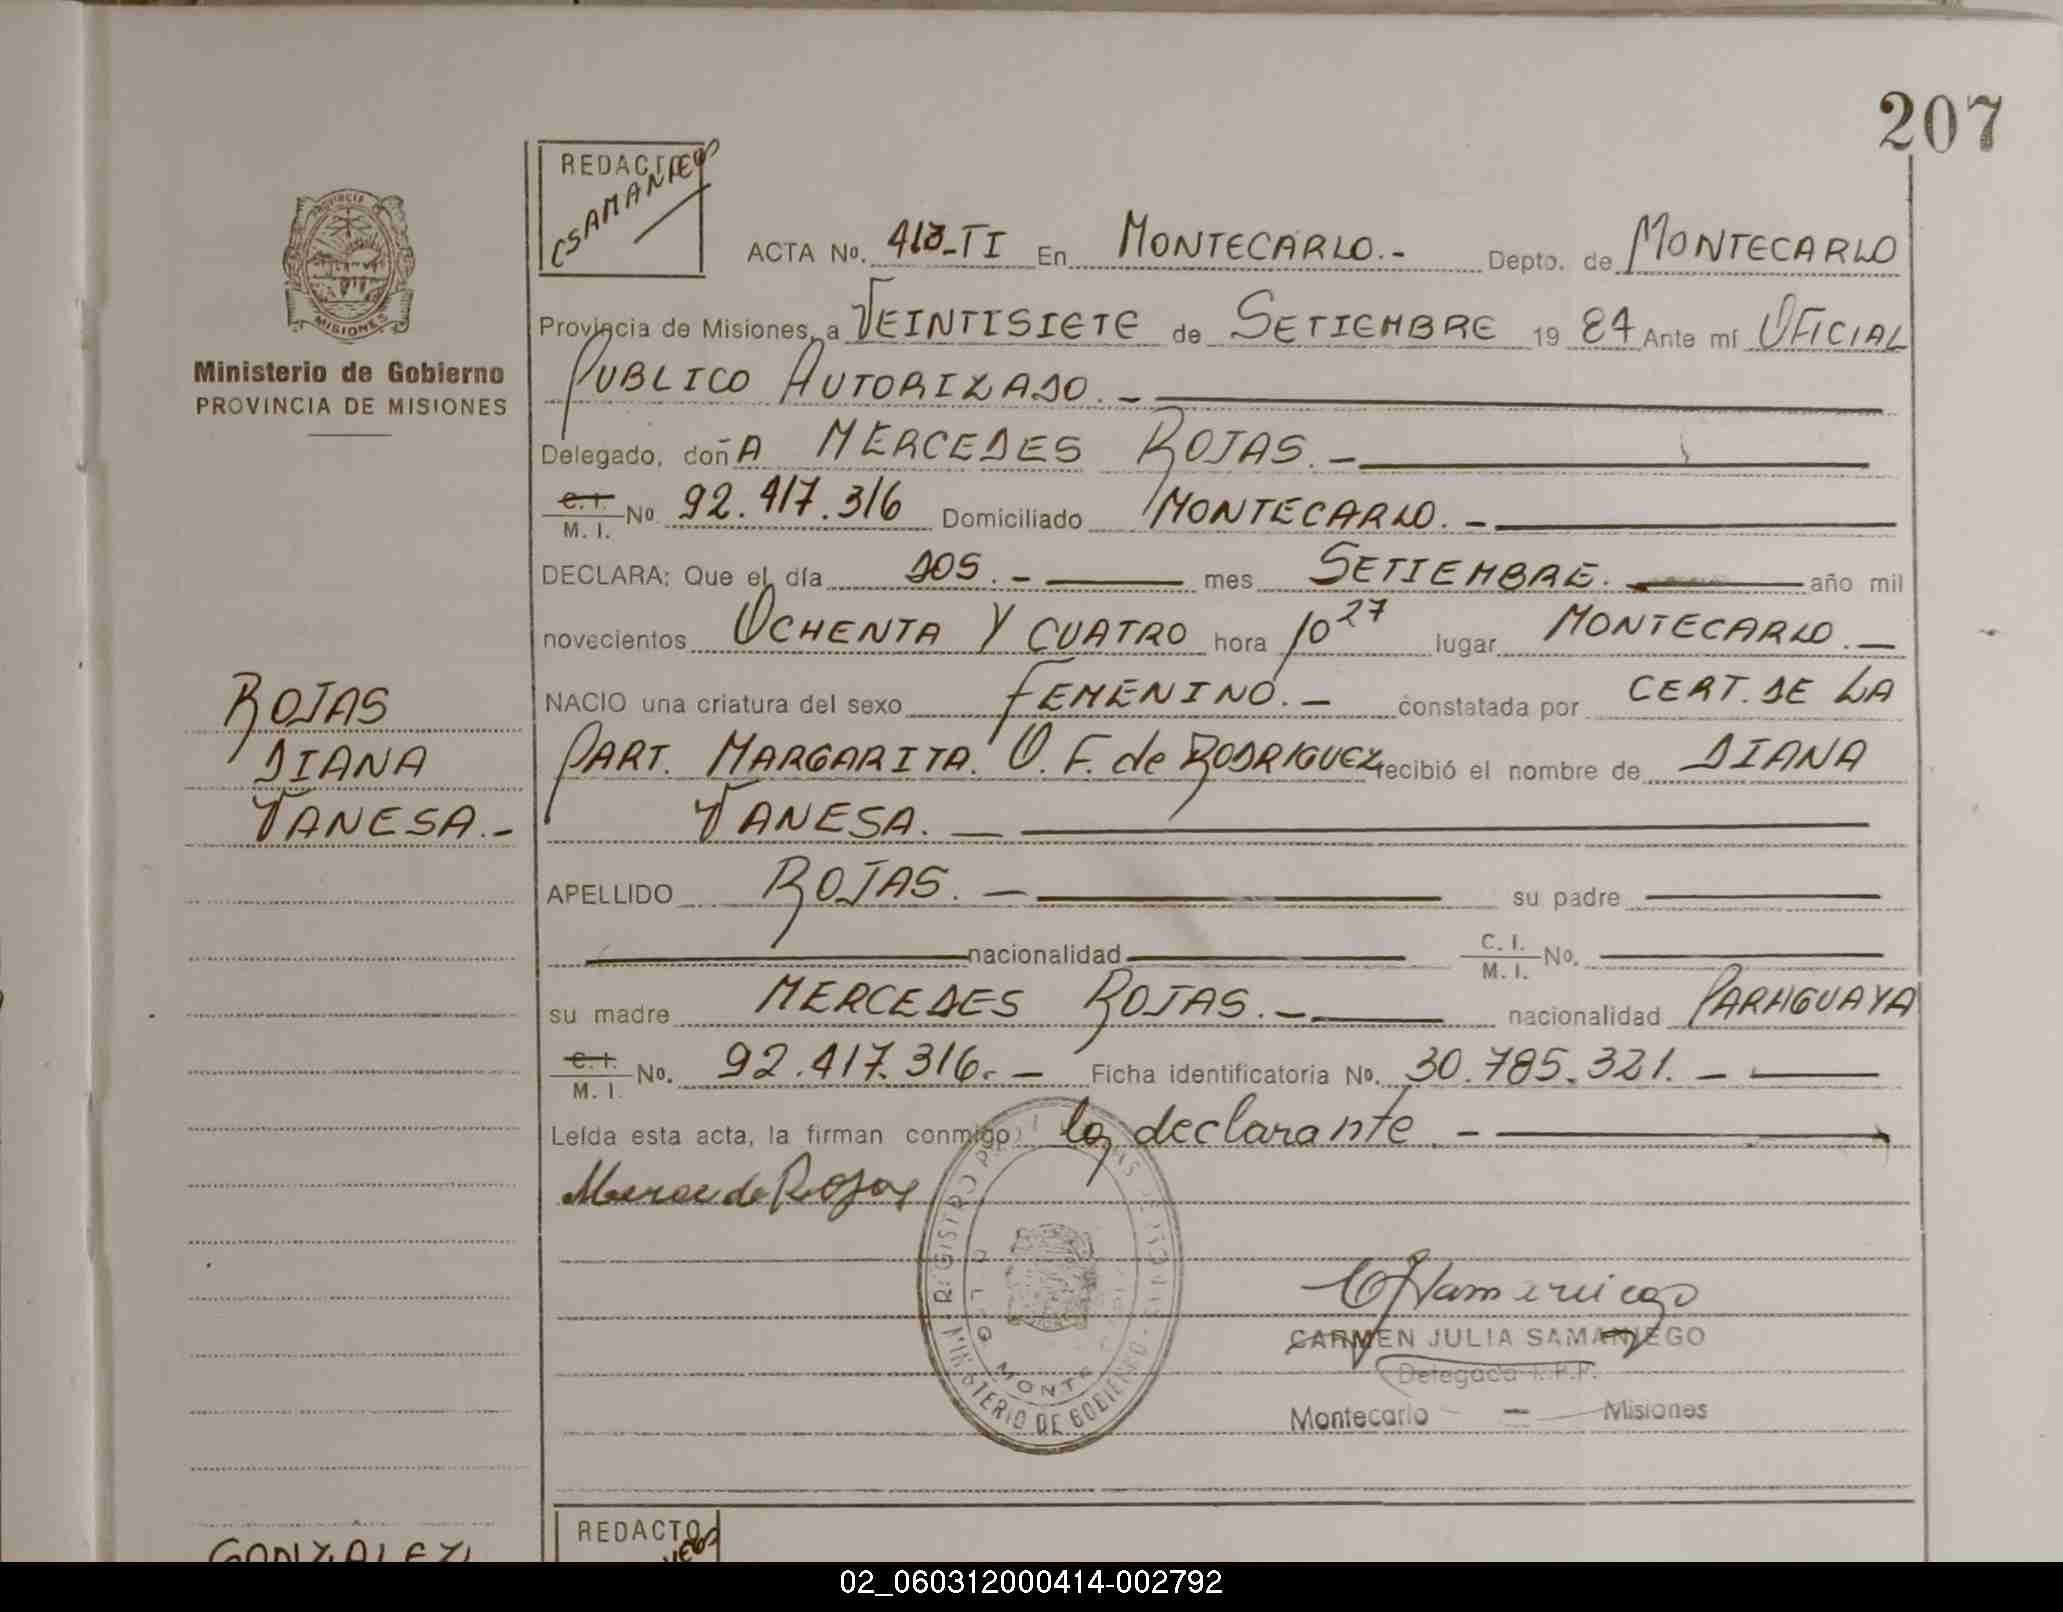 207
REDACTO
CSAMANIEGO
PROVINCIA DE
MISIONES
Ministerio de Gobierno
PROVINCIA DE MISIONES
ACTA No. 413-TI En MONTECARLO.- Depto. de MONTECARLO
Provincia de Misiones, a VEINTISIETE de SETIEMBRE 19 84 Ante mí OFICIAL
PUBLICO AUTORIZADO.-
Delegado, doñA MERCEDES ROJAS.-
C. I. / M. I. No. 92.417.316 Domiciliado MONTECARLO.-
DECLARA: Que el día DOS.- mes SETIEMBRE. año mil
novecientos OCHENTA Y CUATRO hora 10 27 lugar MONTECARLO.-
NACIO una criatura del sexo FEMENINO.- constatada por CERT. DE LA
PART. MARGARITA. O. F. de RODRIGUEZ recibió el nombre de DIANA
VANESA.-
ROJAS
DIANA
VANESA.-
APELLIDO ROJAS.- su padre
nacionalidad C. I. / M. I. No.
su madre MERCEDES ROJAS.- nacionalidad PARAGUAYA
C. I. / M. I. No. 92.417.316.- Ficha identificatoria No. 30.785.321.-
Leída esta acta, la firman conmigo la declarante.-
Mercede Rojas
REGISTRO
MINISTERIO DE GOBIERNO
CSamaniego
CARMEN JULIA SAMANIEGO
Delegada
Montecarlo - Misiones
REDACTO
GONZALEZ
02_060312000414-002792